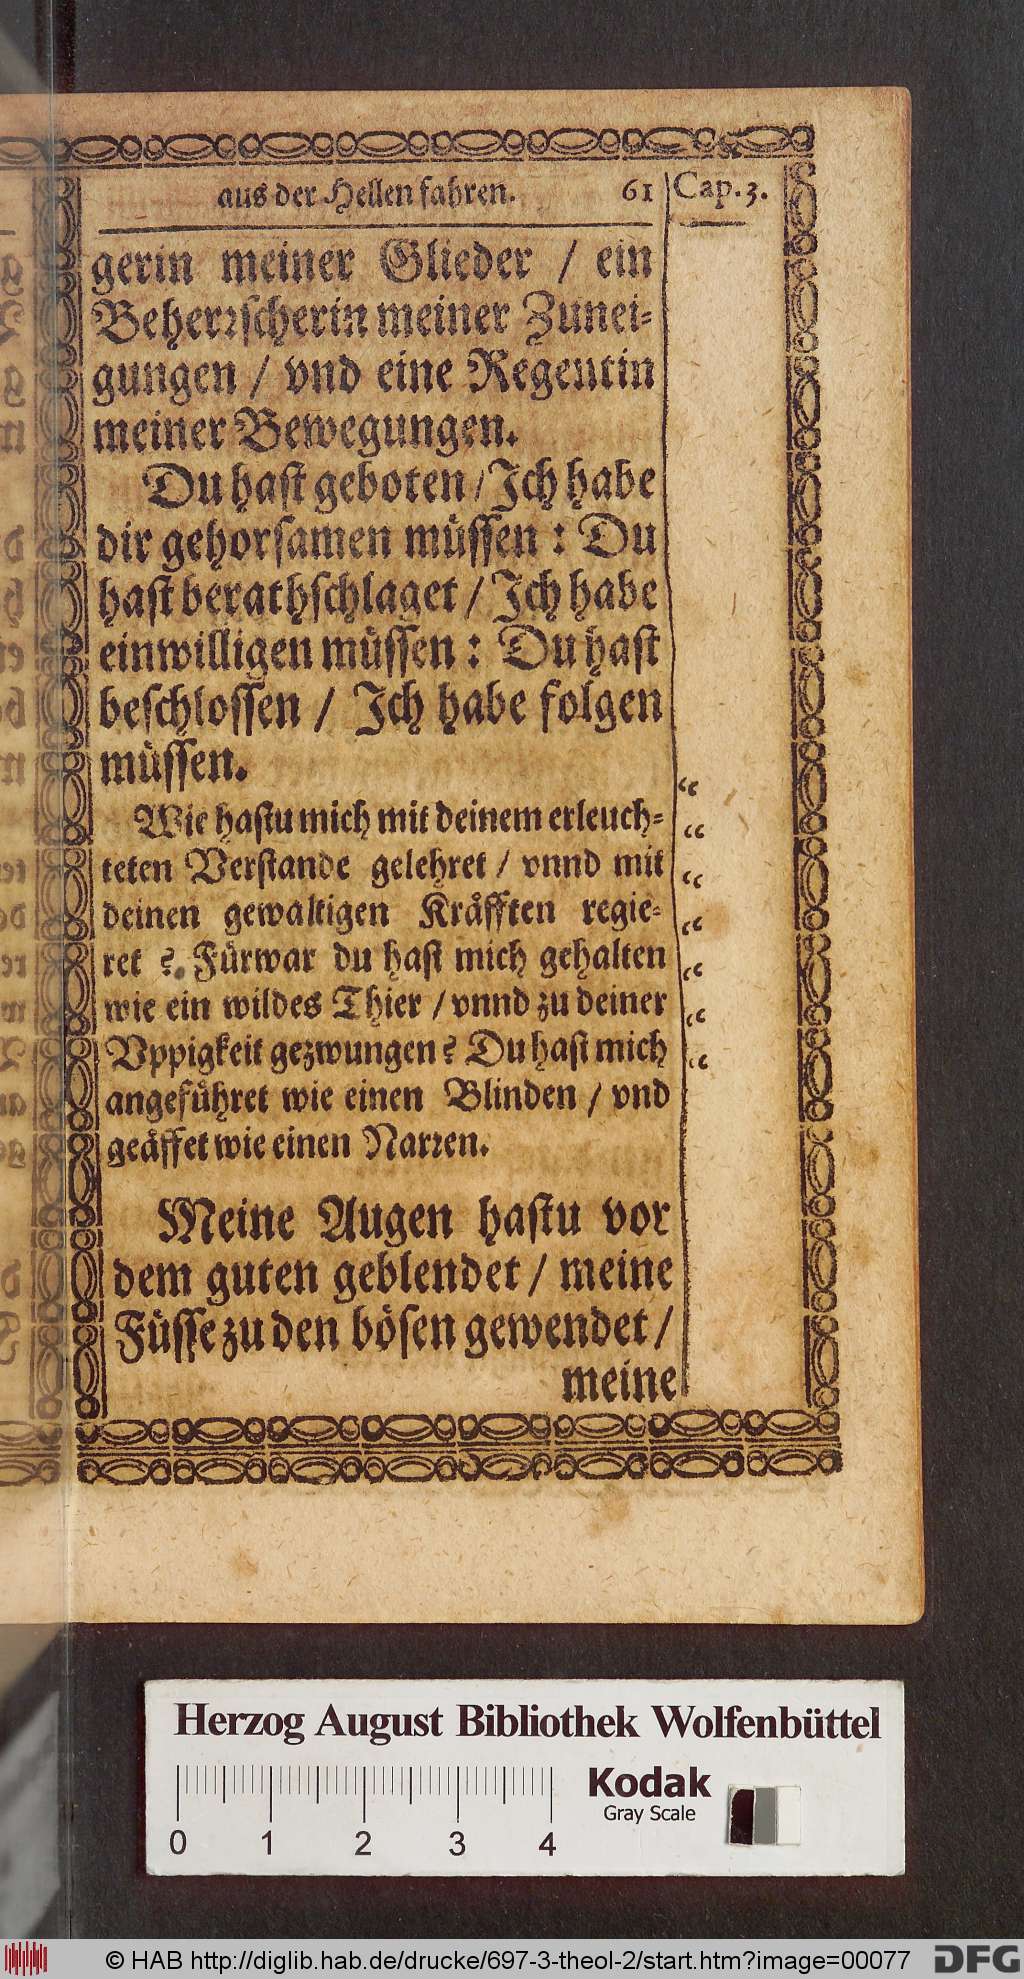 aus der Hellen fahren. 61 Cap. 3.
gerin meiner Glieder / ein
Beherꝛscherin meiner Zunei⸗
gungen / vnd eine Regentin
meiner Bewegungen.
Du hast geboten / Ich habe
dir gehorsamen müssen : Du
hast berathschlaget / Ich habe
einwilligen müssen : Du hast
beschlossen / Ich habe folgen
müssen.
Wie hastu mich mit deinem erleuch⸗
teten Verstande gelehret / vnnd mit
deinen gewaltigen Kräfften regie⸗
ret ? Fürwar du hast mich gehalten
wie ein wildes Thier / vnnd zu deiner
Vppigkeit gezwungen ? Du hast mich
angeführet wie einen Blinden / vnd
geäffet wie einen Narꝛen.
Meine Augen hastu vor
dem guten geblendet / meine
Füsse zu den bösen gewendet /
meine
Herzog August Bibliothek Wolfenbüttel
Kodak
Gray Scale
0 1 2 3 4
© HAB http://diglib.hab.de/drucke/697-3-theol-2/start.htm?image=00077
DFG